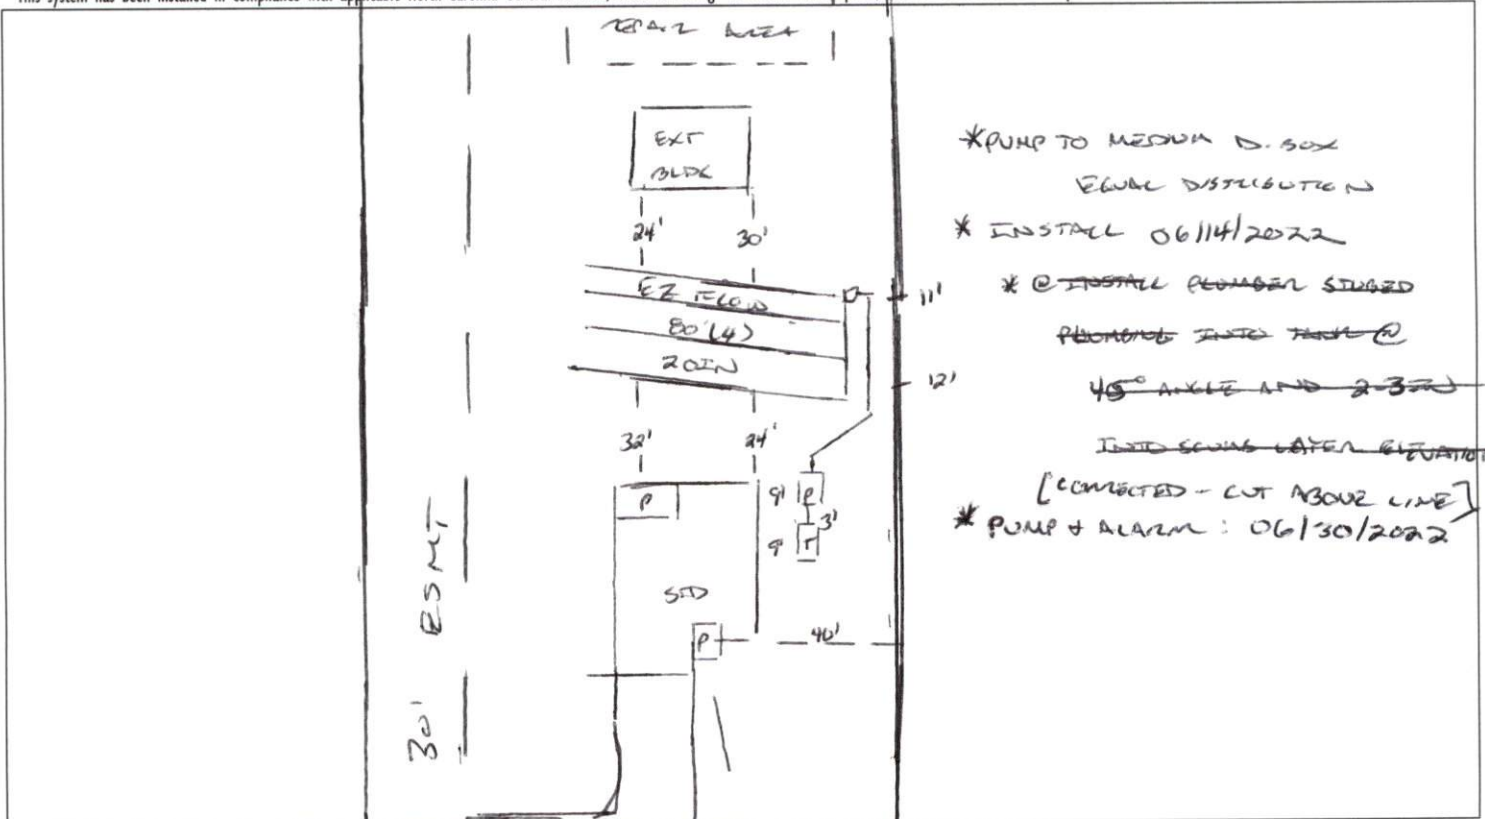 REPAIR AREA
EXT
BLDG
24' 30'
EZ FLOW
80'(4)
20IN
11'
12'
32' 24'
P
9' P
3'
9 T
SFD
P
40'
30' ESMT
*PUMP TO MEDIUM D.BOX
EQUAL DISTRIBUTION
* INSTALL 06/14/2022
* @ INSTALL PLUMBER STUBBED
PLUMBING INTO TANK @
45° ANGLE AND 2-3IN
INTO SCUM LAYER ELEVATION
[CORRECTED - CUT ABOVE LINE]
* PUMP & ALARM : 06/30/2022